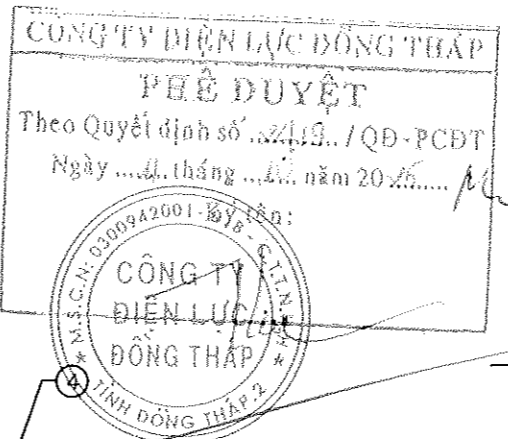 CÔNG TY ĐIỆN LỰC ĐỒNG THÁP
PHÊ DUYỆT
Theo Quyết định số ........ / QĐ-PCĐT
Ngày ........ tháng ........ năm 20........
Ký tên:
M.S.C.N: 0300942001
CÔNG TY
ĐIỆN LỰC
ĐỒNG THÁP
TỈNH ĐỒNG THÁP
4